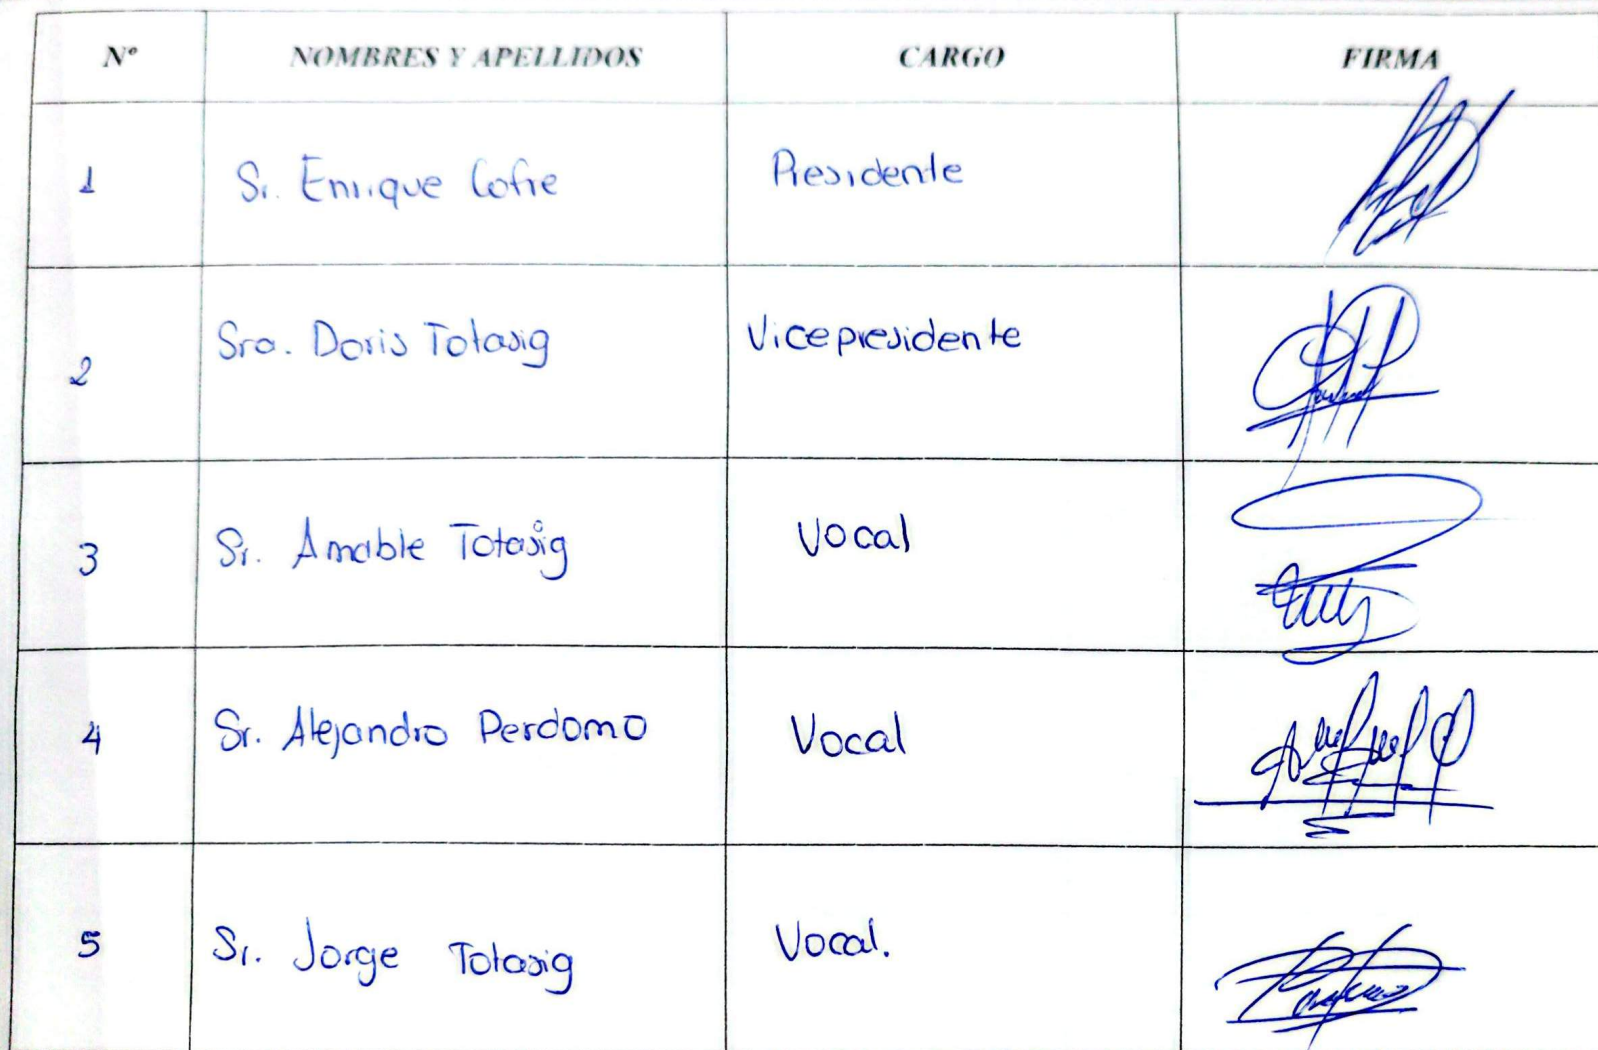 Nº NOMBRES Y APELLIDOS CARGO FIRMA
1 Sr. Enrique Cofre Presidente
2 Sra. Doris Totasig Vicepresidente
3 Sr. Amable Totasig Vocal
4 Sr. Alejandro Perdomo Vocal
5 Sr. Jorge Totasig Vocal.